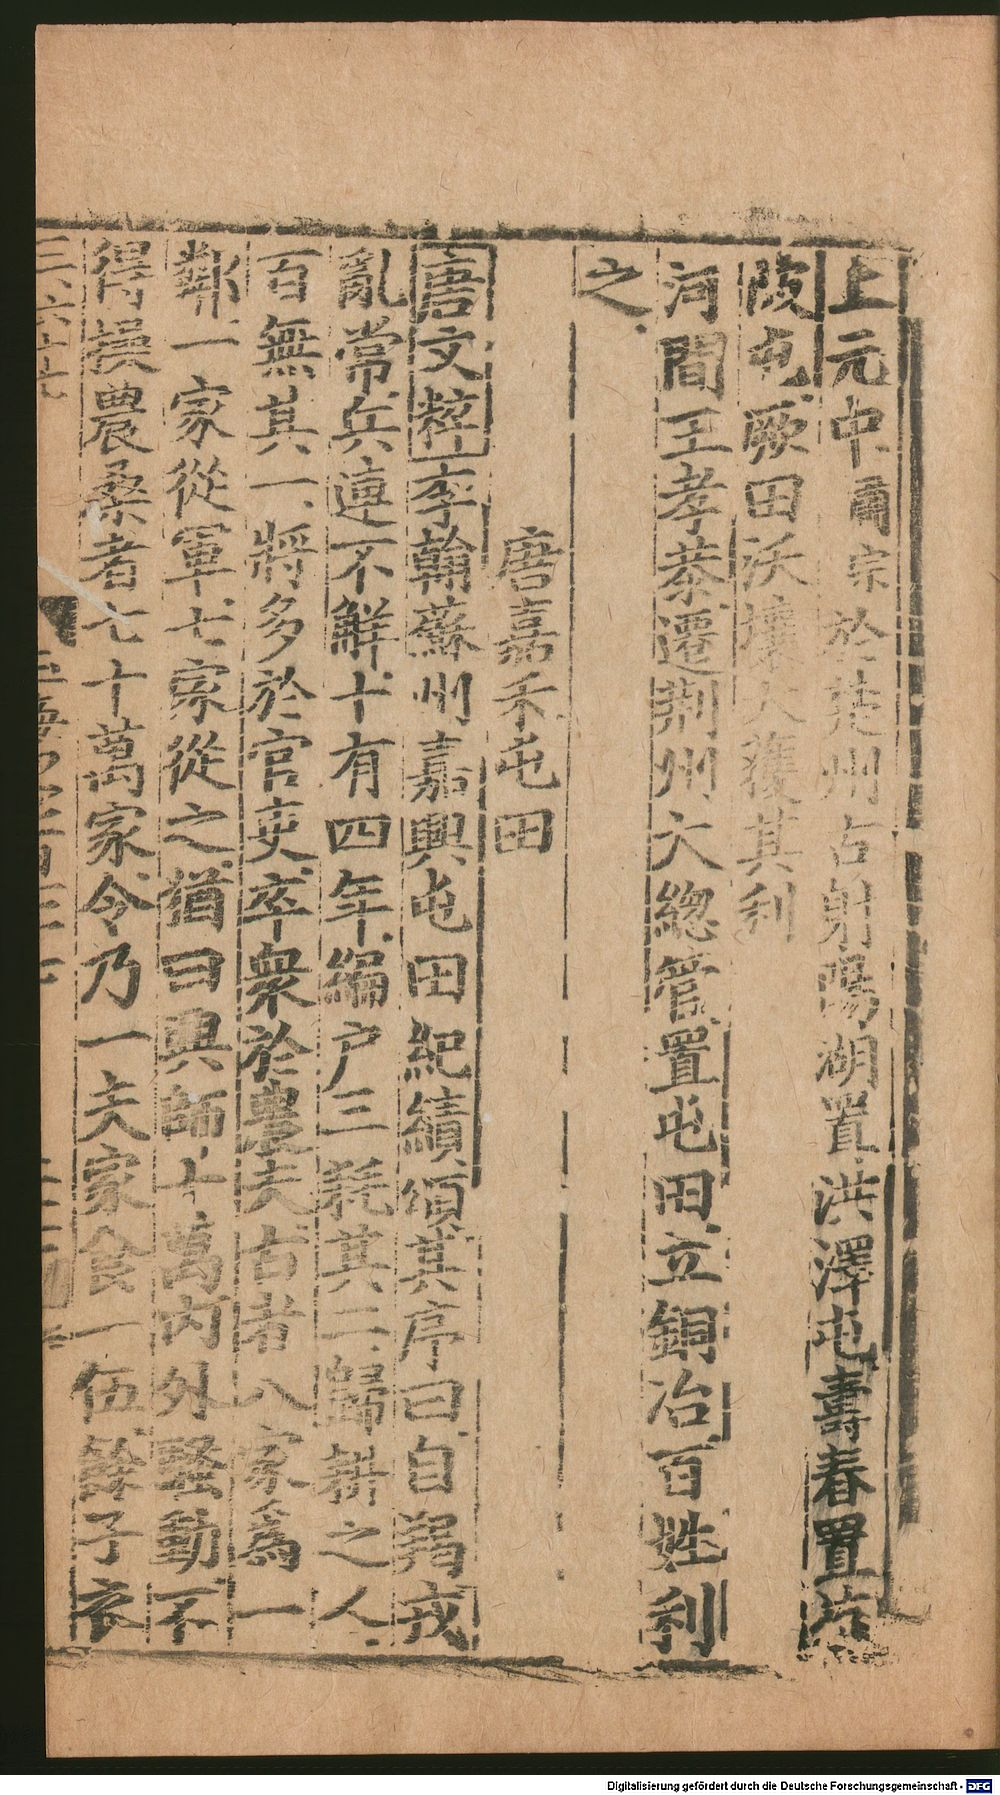 上元中肅宗於楚州古射陽湖置洪澤屯壽春置芍
陂屯厥田沃壤大獲其利
河間王孝恭遷荆州大總管置屯田立銅冶百姓利
之
唐嘉禾屯田
唐文粹李翰蘇州嘉興屯田紀績頌其序曰自羯戎
亂常兵連不解十有四年編户三耗其二歸耕之人
百無其一將多於官吏卒衆於農夫古者八家爲一
鄰一家從軍七家從之猶曰興師十萬内外騷動不
得操農桑者七十萬家令乃一夫家食一伍餘子衣
Digitalisierung gefördert durch die Deutsche Forschungsgemeinschaft - DFG